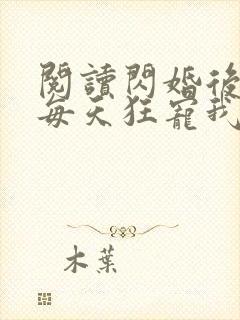 閱讀閃婚後
每天狂寵我
木葉